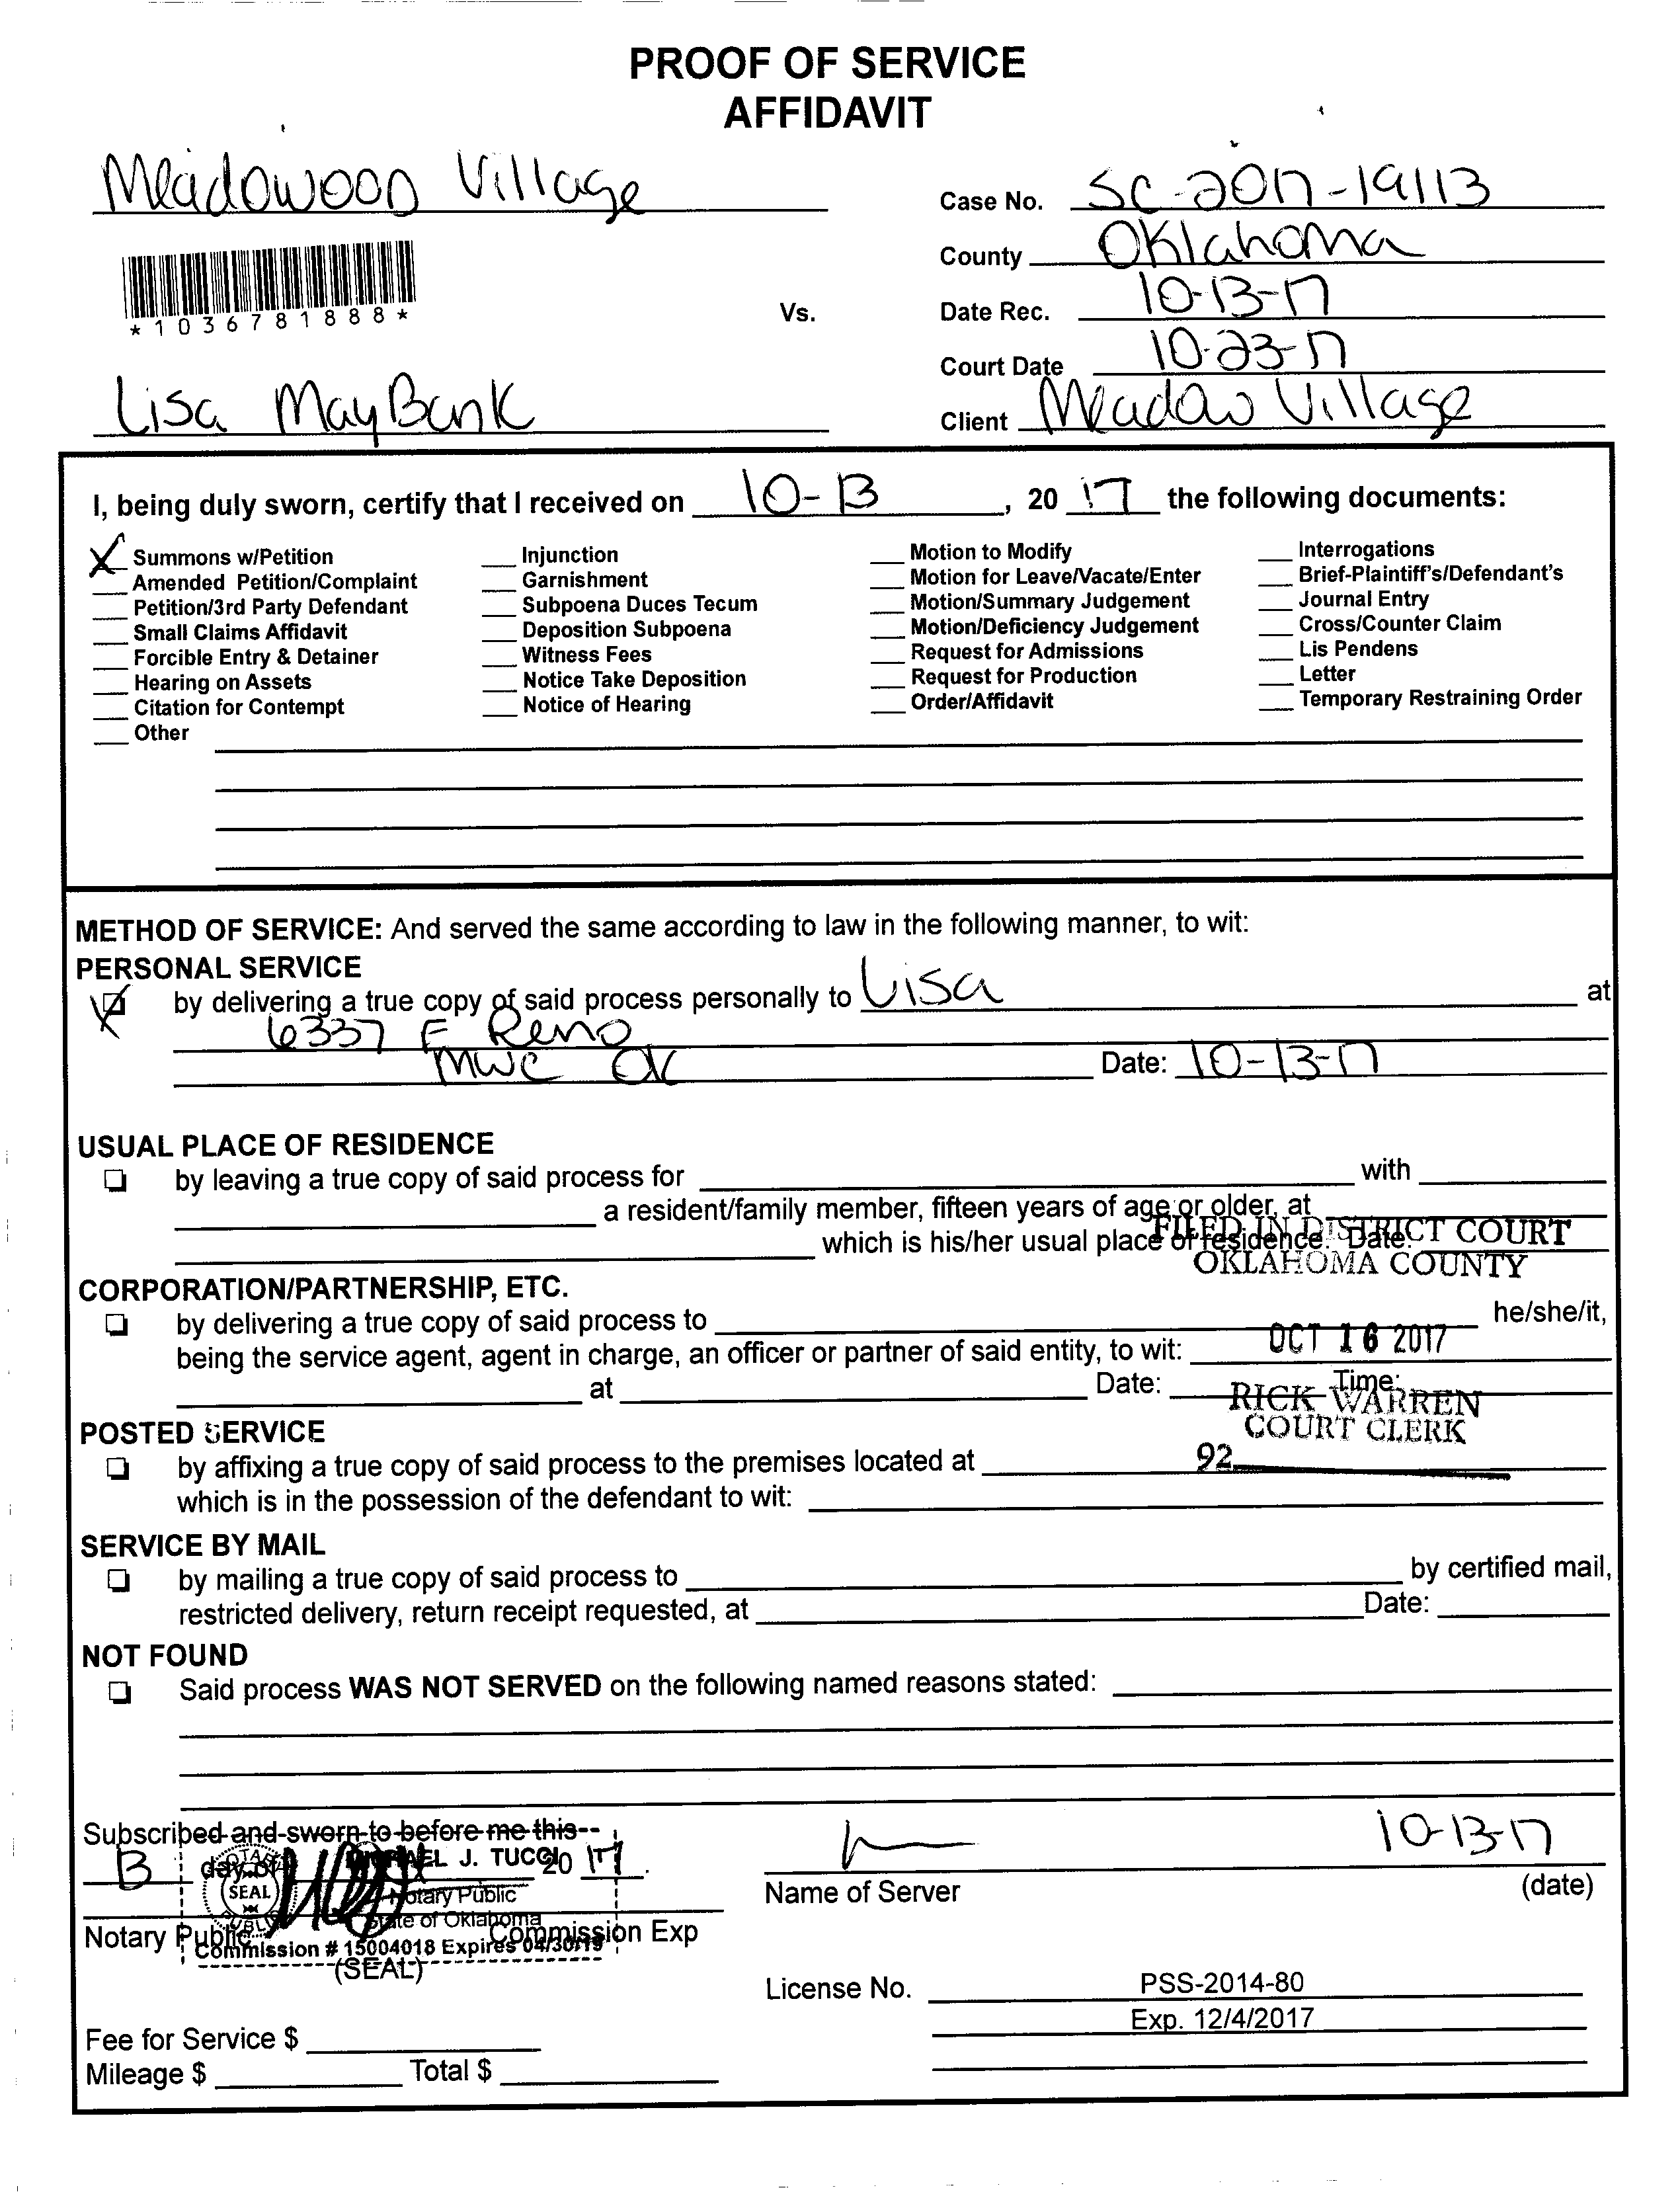 PROOF OF SERVICE
AFFIDAVIT
Meadowood Village
Case No. SC-2017-19113
County Oklahoma
*1036781888*
Vs.
Date Rec. 10-13-17
Court Date 10-23-17
Lisa MayBank
Client Meadow Village
I, being duly sworn, certify that I received on 10-13, 20 17 the following documents:
X Summons w/Petition
Amended Petition/Complaint
Petition/3rd Party Defendant
Small Claims Affidavit
Forcible Entry & Detainer
Hearing on Assets
Citation for Contempt
Other
Injunction
Garnishment
Subpoena Duces Tecum
Deposition Subpoena
Witness Fees
Notice Take Deposition
Notice of Hearing
Motion to Modify
Motion for Leave/Vacate/Enter
Motion/Summary Judgement
Motion/Deficiency Judgement
Request for Admissions
Request for Production
Order/Affidavit
Interrogations
Brief-Plaintiff's/Defendant's
Journal Entry
Cross/Counter Claim
Lis Pendens
Letter
Temporary Restraining Order
METHOD OF SERVICE: And served the same according to law in the following manner, to wit:
PERSONAL SERVICE
X by delivering a true copy of said process personally to Lisa at
6337 E Reno
MWC OK Date: 10-13-17
USUAL PLACE OF RESIDENCE
by leaving a true copy of said process for with
a resident/family member, fifteen years of age or older, at
which is his/her usual place of residence. Date:
FILED IN DISTRICT COURT
OKLAHOMA COUNTY
CORPORATION/PARTNERSHIP, ETC.
by delivering a true copy of said process to he/she/it,
being the service agent, agent in charge, an officer or partner of said entity, to wit:
OCT 16 2017
at Date: Time:
RICK WARREN
COURT CLERK
92
POSTED SERVICE
by affixing a true copy of said process to the premises located at
which is in the possession of the defendant to wit:
SERVICE BY MAIL
by mailing a true copy of said process to by certified mail,
restricted delivery, return receipt requested, at Date:
NOT FOUND
Said process WAS NOT SERVED on the following named reasons stated:
Subscribed and sworn to before me this
13 day of 20 17.
J. TUCCI
NOTARY PUBLIC
SEAL
Notary Public
State of Oklahoma
Commission # 15004018 Expires 04/30/19
Notary Public Commission Exp
(SEAL)
10-13-17
Name of Server (date)
License No. PSS-2014-80
Exp. 12/4/2017
Fee for Service $
Mileage $ Total $